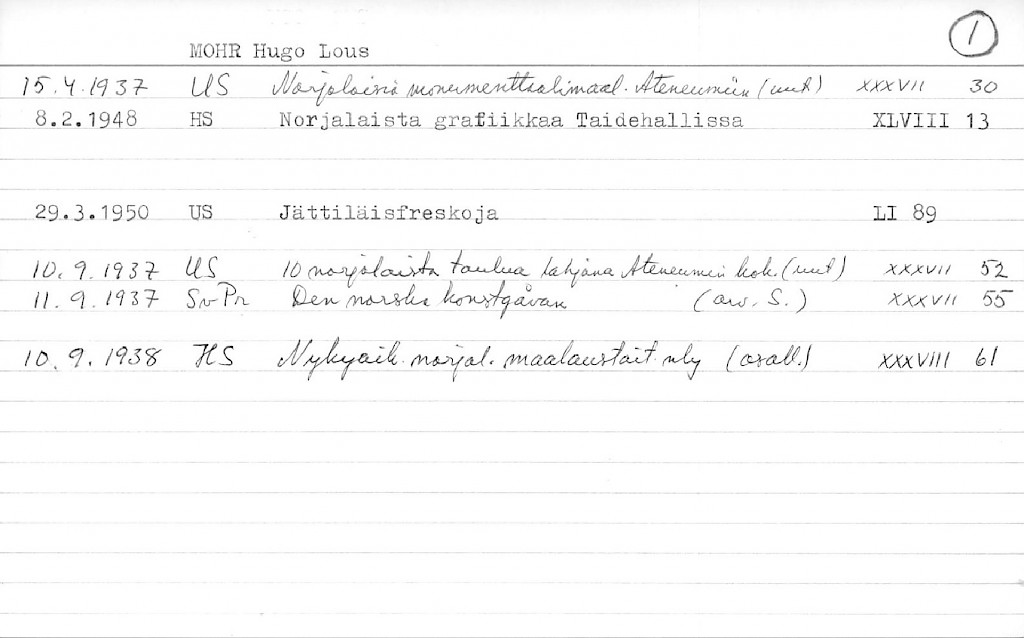 1
MOHR Hugo Lous
15.4.1937 US Norjalaisia monumenttaalimaal. Ateneumiin (uut) XXXVII 30
8.2.1948 HS Norjalaista grafiikkaa Taidehallissa XLVIII 13
29.3.1950 US Jättiläisfreskoja LI 89
10.9.1937 US 10 norjalaista taulua lahjana Ateneumin kok. (uut) XXXVII 52
11.9.1937 Sv-Pr Den norska konstgåvan (arv. S.) XXXVII 55
10.9.1938 HS Nykyaik. norjal. maalaustait. nly (osall.) XXXVIII 61